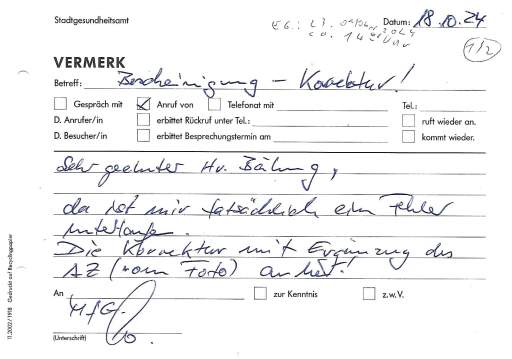 Stadtgesundheitsamt
EG.: 23. 2024
ca. 14
Datum: 18.10.24
1/2
VERMERK
Betreff: Bescheinigung – Korrektur!
Gespräch mit Anruf von Telefonat mit Tel.:
D. Anrufer/in erbittet Rückruf unter Tel.: ruft wieder an.
D. Besucher/in erbittet Besprechungstermin am kommt wieder.
Sehr geehrter Hr.
da ist mir tatsächlich ein Fehler
unterlaufen.
Die Korrektur mit Ergänzung des
AZ (vom Foto) anbei!
An zur Kenntnis z.w.V.
MfG.
(Unterschrift)
11.2002/1918 Gedruckt auf Recyclingpapier